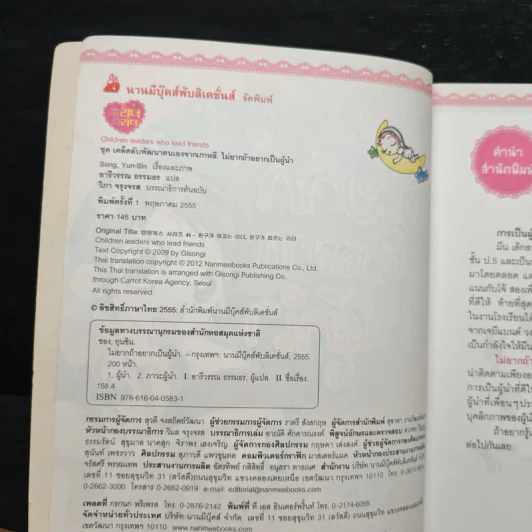 นานมีบุ๊คส์พับลิเคชั่นส์ จัดพิมพ์
Children leaders who lead friends
ชุด เคล็ดลับพัฒนาตนเองจากเกาหลี: ไม่ยากถ้าอยากเป็นผู้นำ
Song, Yun-Sin เรื่องและภาพ
อารีวรรณ ธรรมอร แปล
วิภา จรุงจรส บรรณาธิการต้นฉบับ
พิมพ์ครั้งที่ 1 พฤษภาคม 2555
ราคา 145 บาท
Original Title:
Children leaders who lead friends
Text Copyright © 2009 by Glsongi
Thai translation copyright © 2012 Nanmeebooks Publications Co., Ltd.
This Thai translation is arranged with Glsongi Publishing Co,
through Carrot Korea Agency, Seoul
All rights reserved.
© ลิขสิทธิ์ภาษาไทย 2555: สำนักพิมพ์นานมีบุ๊คส์พับลิเคชั่นส์
ข้อมูลทางบรรณานุกรมของสำนักหอสมุดแห่งชาติ
ซอง, ยุนซิน.
ไม่ยากถ้าอยากเป็นผู้นำ. -- กรุงเทพฯ: นานมีบุ๊คส์พับลิเคชั่นส์, 2555.
200 หน้า.
1. ผู้นำ. 2. ภาวะผู้นำ. I. อารีวรรณ ธรรมอร, ผู้แปล. II. ชื่อเรื่อง.
158.4
ISBN 978-616-04-0583-1
กรรมการผู้จัดการ สุวดี จงสถิตย์วัฒนา ผู้ช่วยกรรมการผู้จัดการ ราตรี สังสกฤษ ผู้จัดการสำนักพิมพ์
หัวหน้ากองบรรณาธิการ วิมล จรุงจรส บรรณาธิการเล่ม อาณัติ ศักดารณรงค์ พิสูจน์อักษรและตรวจสอบ
ธรรมรัตน์ สุขุมาล นาคสุก จิราพร เฮงเจริญ ผู้จัดการกองศิลปกรรม กฤษดา เส่งสงค์
สุนันท์ เพชรวาว ศิลปกรรม สุภาวดี แพวขุนทด คอมพิวเตอร์กราฟิก มาสเตอร์แมค
จรัสศรี พรหมเทพ ประสานงานการผลิต ฉัตรทิพย์ กสิสิทธิ์ อนุสรา ตาธเนศ สำนักงาน บริษัท นานมีบุ๊คส์พับลิเคชั่นส์ จำกัด
เลขที่ 11 ซอยสุขุมวิท 31 (สวัสดี) ถนนสุขุมวิท แขวงคลองเตยเหนือ เขตวัฒนา กรุงเทพฯ 10110 โทร.
0-2662-3000 โทรสาร 0-2662-0919 e-mail: editorial@nanmeebooks.com
เพลตที่ กรกนก พรีเพรส โทร. 0-2876-2142 พิมพ์ที่ อี เอส อินเตอร์พริ้นท์ โทร. 0-2174-6088
จัดจำหน่ายทั่วประเทศ บริษัท นานมีบุ๊คส์ จำกัด เลขที่ 11 ซอยสุขุมวิท 31 (สวัสดี) ถนนสุขุมวิท แขวงคลองเตยเหนือ
เขตวัฒนา กรุงเทพฯ 10110 www.nanmeebooks.com
คำนำ
สำนักพิมพ์
การเป็นผู้
มีน เด็กส
ชั้น ป.5 และเป็น
มาโดยตลอด แต
แนนกับโจ้ สองเพื่
ที่ดีให้ ท้ายที่สุด
ในงานโรงเรียนได้
จากเจมีแบนด์ วง
เป็นกำลังใจให้มีน
ไม่ยากถ้า
น่าติดตามเพียงอ
การเป็นผู้นำที่ดีใ
ผู้นำที่เพื่อนๆ ประ
บุคลิกภาพของผู้นำ
ถ้าอยากรู้
ต่อไปกันเลย